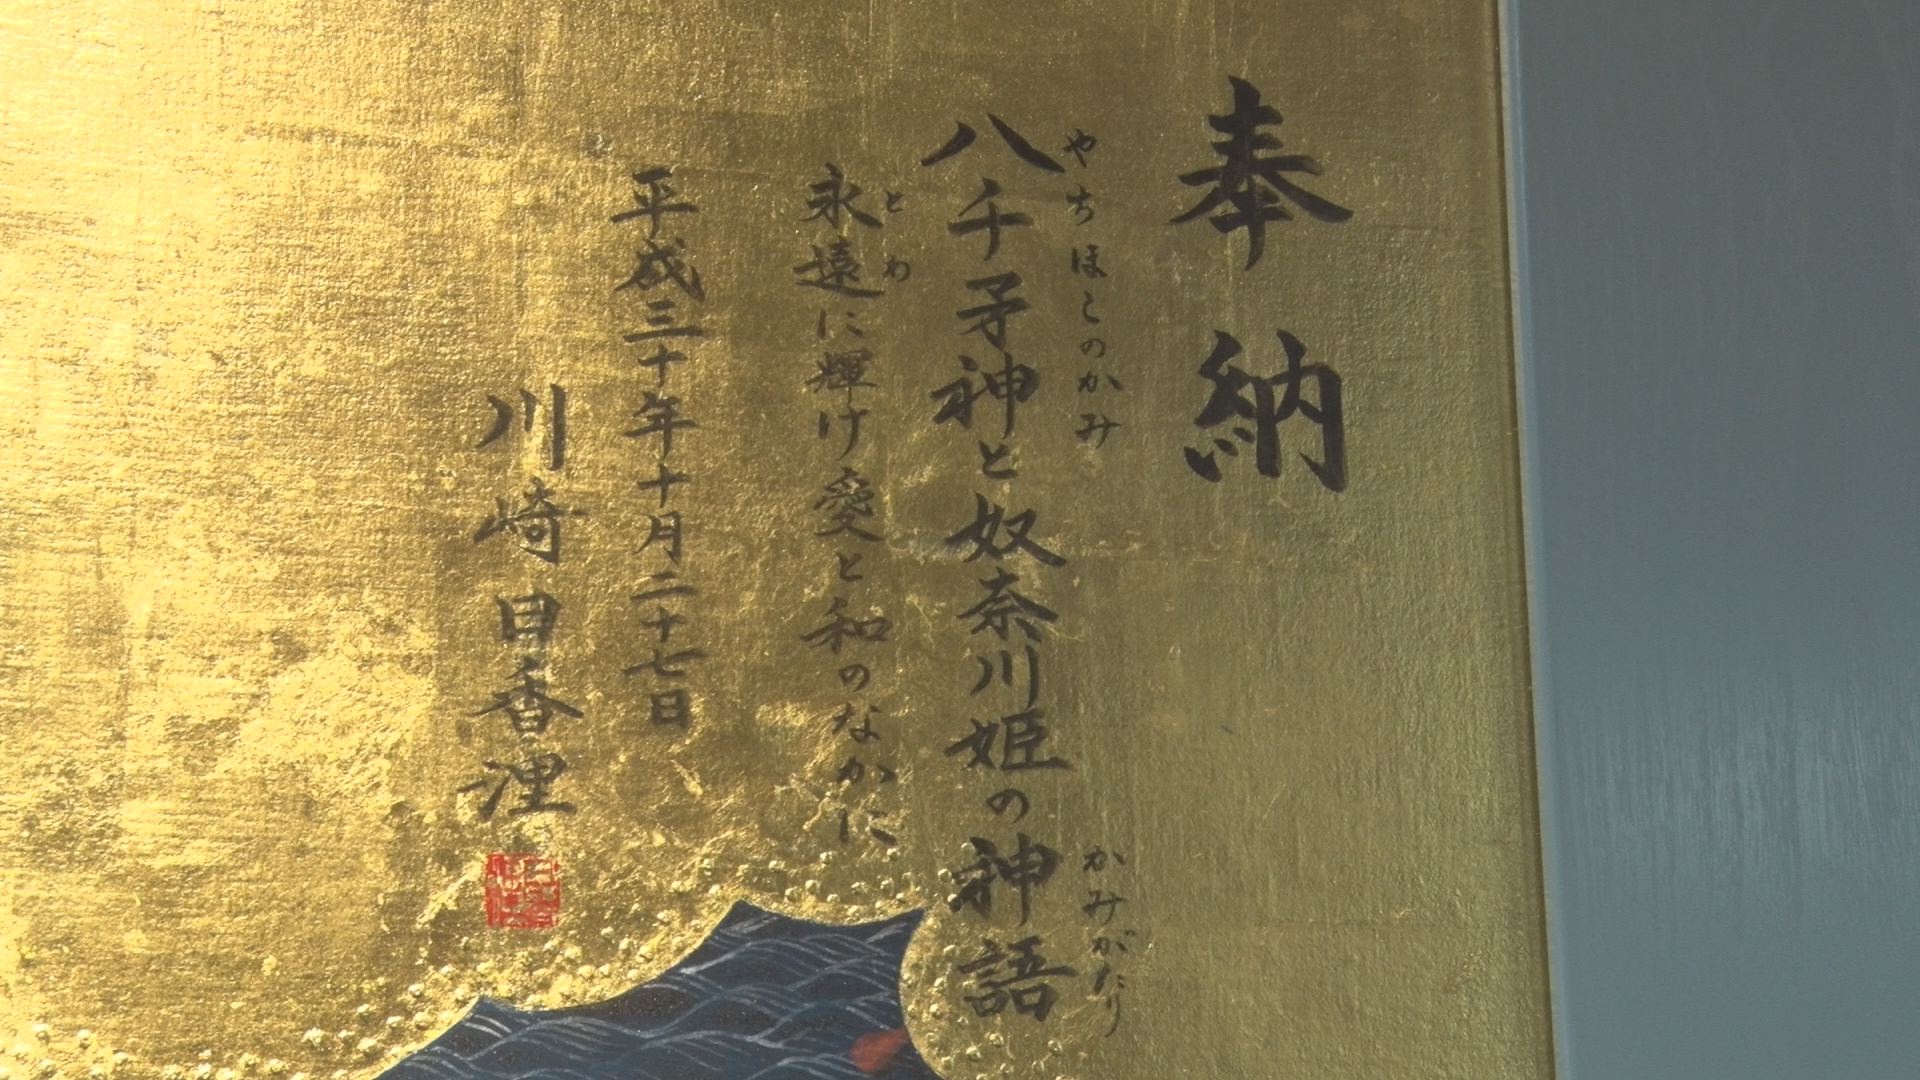 奉納
やちほこのかみ
八千矛神と奴奈川姫の神語
かみがたり
とわ
永遠に輝け愛と和のなかに
平成三十年十月二十七日
川崎日香浬